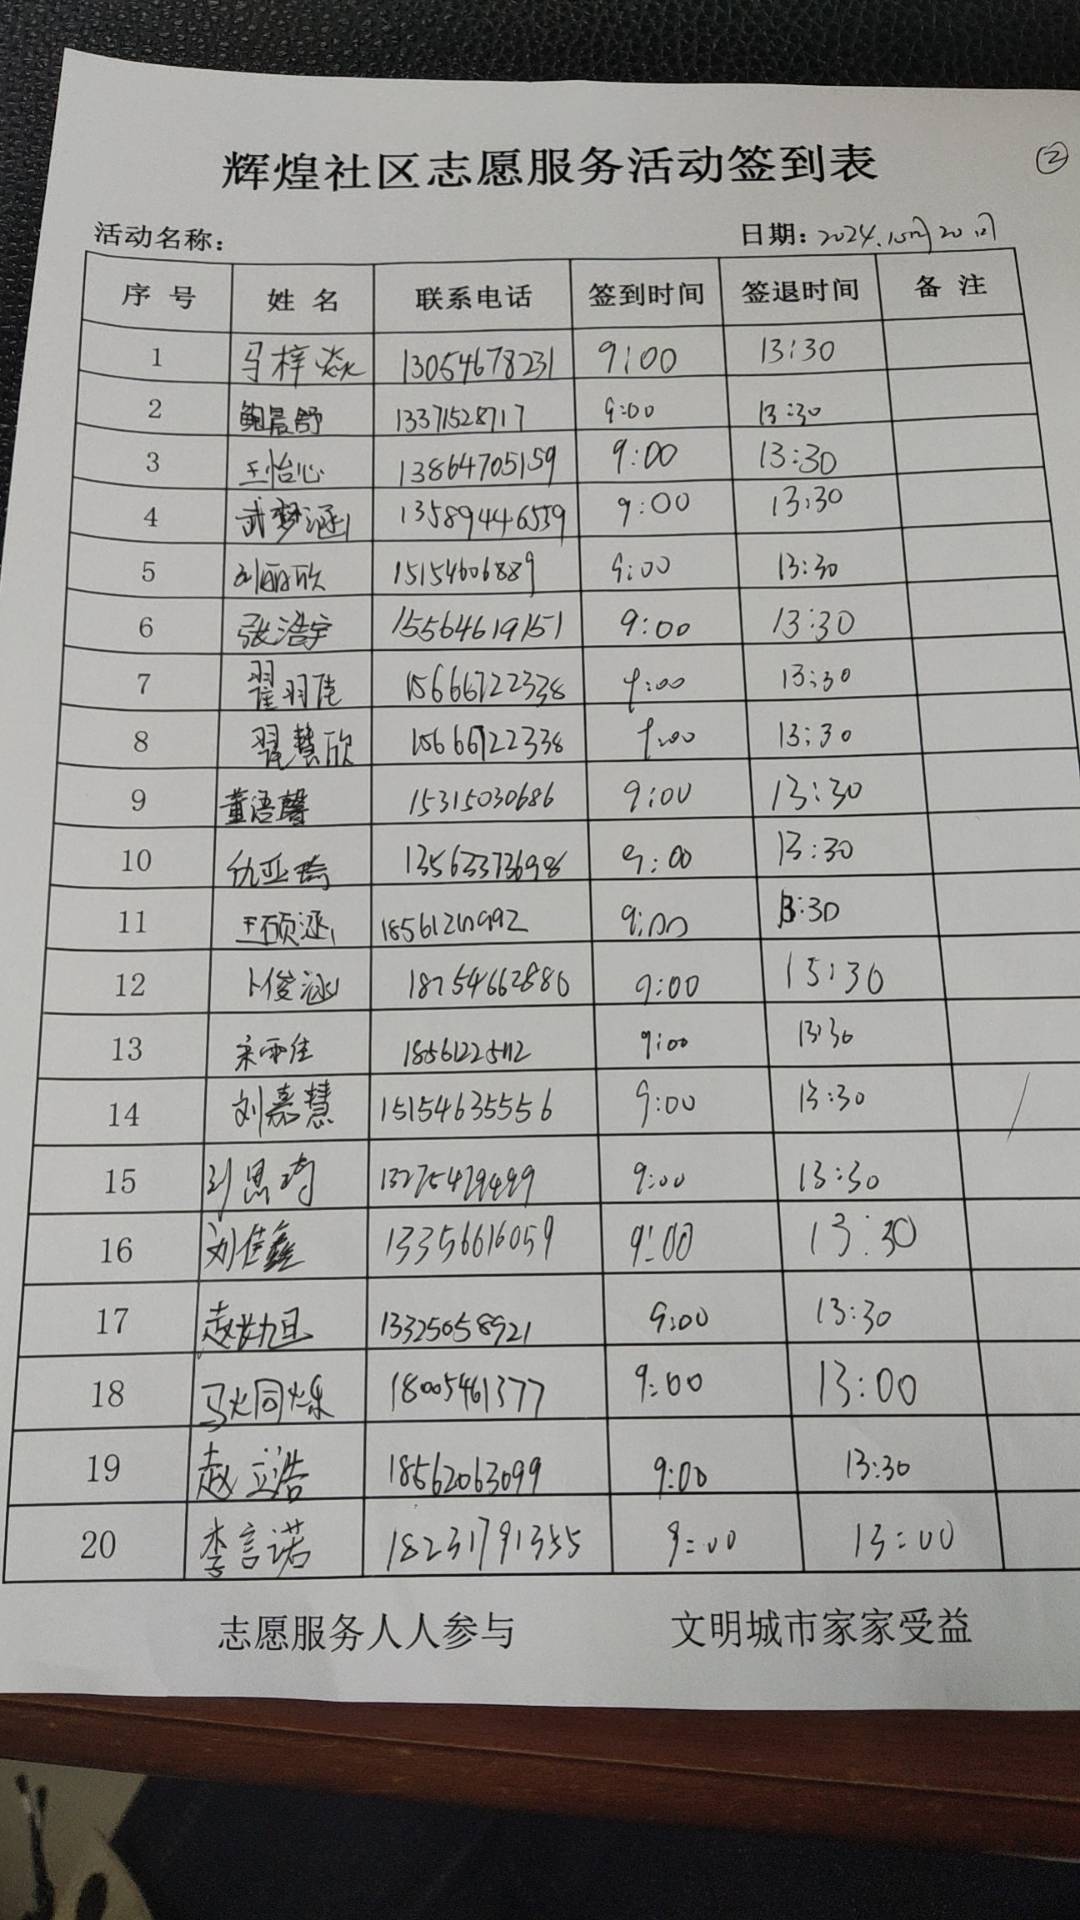 辉煌社区志愿服务活动签到表
②
活动名称：
日期：2024.10月20日
序号 姓名 联系电话 签到时间 签退时间 备注
1 马梓焱 13054678231 9:00 13:30
2 鲍晨舒 13371528717 9:00 13:30
3 王怡心 13864705159 9:00 13:30
4 武梦涵 13589446559 9:00 13:30
5 刘丽欣 15154606889 9:00 13:30
6 张浩宇 15564619151 9:00 13:30
7 翟羽佳 15666722338 9:00 13:30
8 翟慧欣 15666722338 9:00 13:30
9 董语馨 15315030686 9:00 13:30
10 仇亚 13563373698 9:00 13:30
11 王硕涵 9:00 13:30
12 卜俊涵 18754662886 9:00 15:30
13 宋雨佳 18561225112 9:00 13:30
14 刘嘉慧 15154635556 9:00 13:30
15 刘思琦 13275479499 9:00 13:30
16 刘佳鑫 13356616059 9:00 13:30
17 赵 13325058921 9:00 13:30
18 马 18005461377 9:00 13:00
19 赵立浩 18562063099 9:00 13:30
20 李言诺 18231791355 9:00 13:00
志愿服务人人参与 文明城市家家受益